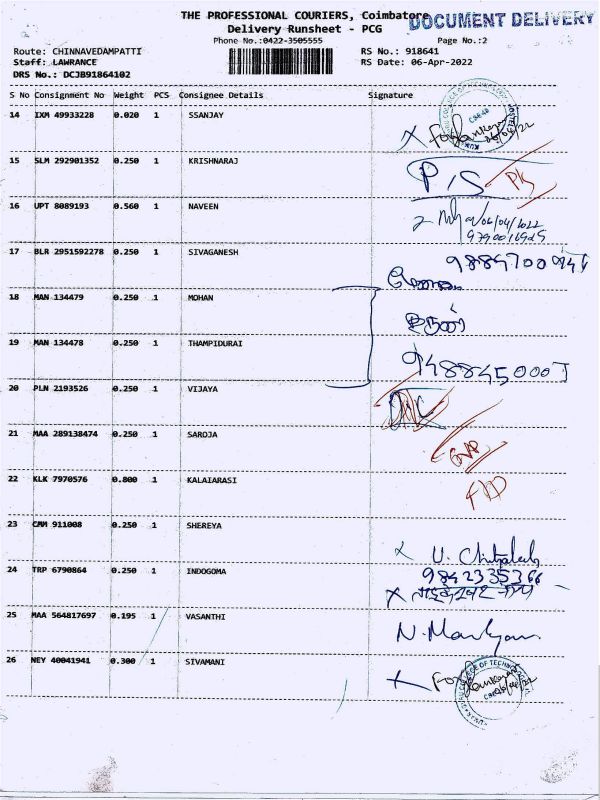 THE PROFESSIONAL COURIERS, Coimbatore
DOCUMENT DELIVERY
Delivery Runsheet - PCG
Phone No.:0422-3505555 Page No.:2
Route: CHINNAVEDAMPATTI RS No.: 918641
Staff: LAWRANCE RS Date: 06-Apr-2022
DRS No.: DCJB91864102
S No Consignment No Weight PCS Consignee Details Signature
14 IXM 49933228 0.020 1 SSANJAY
15 SLM 292901352 0.250 1 KRISHNARAJ
P/S
16 UPT 8089193 0.560 1 NAVEEN
06/04/2022
17 BLR 2951592278 0.250 1 SIVAGANESH
18 MAN 134479 0.250 1 MOHAN
19 MAN 134478 0.250 1 THAMPIDURAI
20 PLN 2193526 0.250 1 VIJAYA
21 MAA 289138474 0.250 1 SAROJA
22 KLK 7970576 0.800 1 KALAIARASI
23 CMM 911008 0.250 1 SHEREYA
24 TRP 6790864 0.250 1 INDOGOMA
9842335366
25 MAA 564817697 0.195 1 VASANTHI
26 NEY 40041941 0.300 1 SIVAMANI